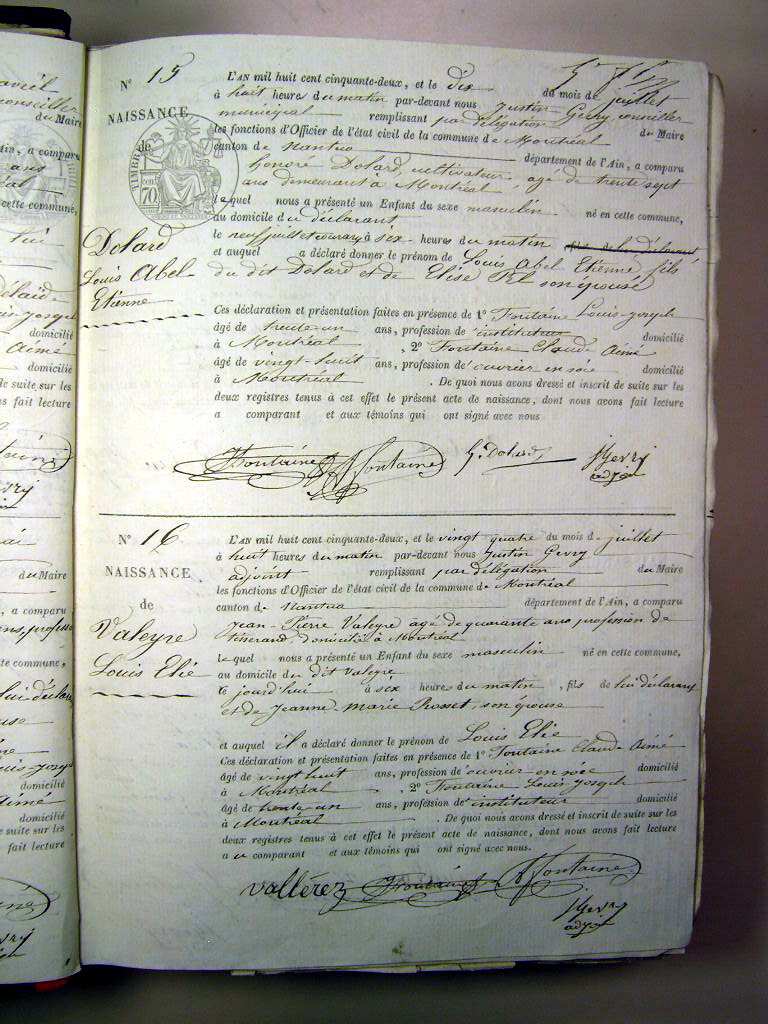 avril
conseiller
du Maire
ain, a comparu
ans
al
cette commune,
lui
domicilié
Aimé
domicilié
de suite sur les
fait lecture
N° 15
NAISSANCE
de
TIMBRE
cent
70
Dolard
Louis Abel
Etienne
L'AN mil huit cent cinquante-deux, et le dix du mois de juillet
à huit heures du matin par-devant nous Justin Gevry conseiller
municipal remplissant par délégation du Maire
les fonctions d'Officier de l'état civil de la commune de Montréal
canton de Nantua département de l'Ain, a comparu
honoré Dolard, cultivateur âgé de trente sept
ans demeurant à Montréal
lequel nous a présenté un Enfant du sexe masculin né en cette commune,
au domicile du déclarant
le neuf juillet courant à six heures du matin fils de lui déclarant
et auquel a déclaré donner le prénom de Louis Abel Etienne fils
du dit Dolard et de Elise son épouse
Ces déclaration et présentation faites en présence de 1° Fontaine Louis-joseph
âgé de trente-un ans, profession d'instituteur domicilié
à Montréal, 2° Fontaine Claude Aimé
âgé de vingt-huit ans, profession d'ouvrier en soie domicilié
à Montréal. De quoi nous avons dressé et inscrit de suite sur les
deux registres tenus à cet effet le présent acte de naissance, dont nous avons fait lecture
a comparant et aux témoins qui ont signé avec nous
Fontaine Fontaine h. Dolard J Gevry
adj
N° 16
NAISSANCE
de
Valeyre
Louis Elie
L'AN mil huit cent cinquante-deux, et le vingt quatre du mois de juillet
à huit heures du matin par-devant nous Justin Gevry
adjoint remplissant par délégation du Maire
les fonctions d'Officier de l'état civil de la commune de Montréal
canton de Nantua département de l'Ain, a comparu
Jean-Pierre Valeyre agé de quarante ans profession de
tisserand domicilié à Montréal
lequel nous a présenté un Enfant du sexe masculin né en cette commune,
au domicile du dit Valeyre
le jourd'hui à six heures du matin, fils de lui déclarant
et de Jeanne-Marie Rosset son épouse
et auquel il a déclaré donner le prénom de Louis Elie
Ces déclaration et présentation faites en présence de 1° Fontaine Claude Aimé
âgé de vingt huit ans, profession d'ouvrier en soie domicilié
à Montréal, 2° Fontaine Louis joseph
âgé de trente-un ans, profession d'instituteur domicilié
à Montréal. De quoi nous avons dressé et inscrit de suite sur les
deux registres tenus à cet effet le présent acte de naissance, dont nous avons fait lecture
a u comparant et aux témoins qui ont signé avec nous.
vallérez Fontaine Fontaine
J Gevry
adj